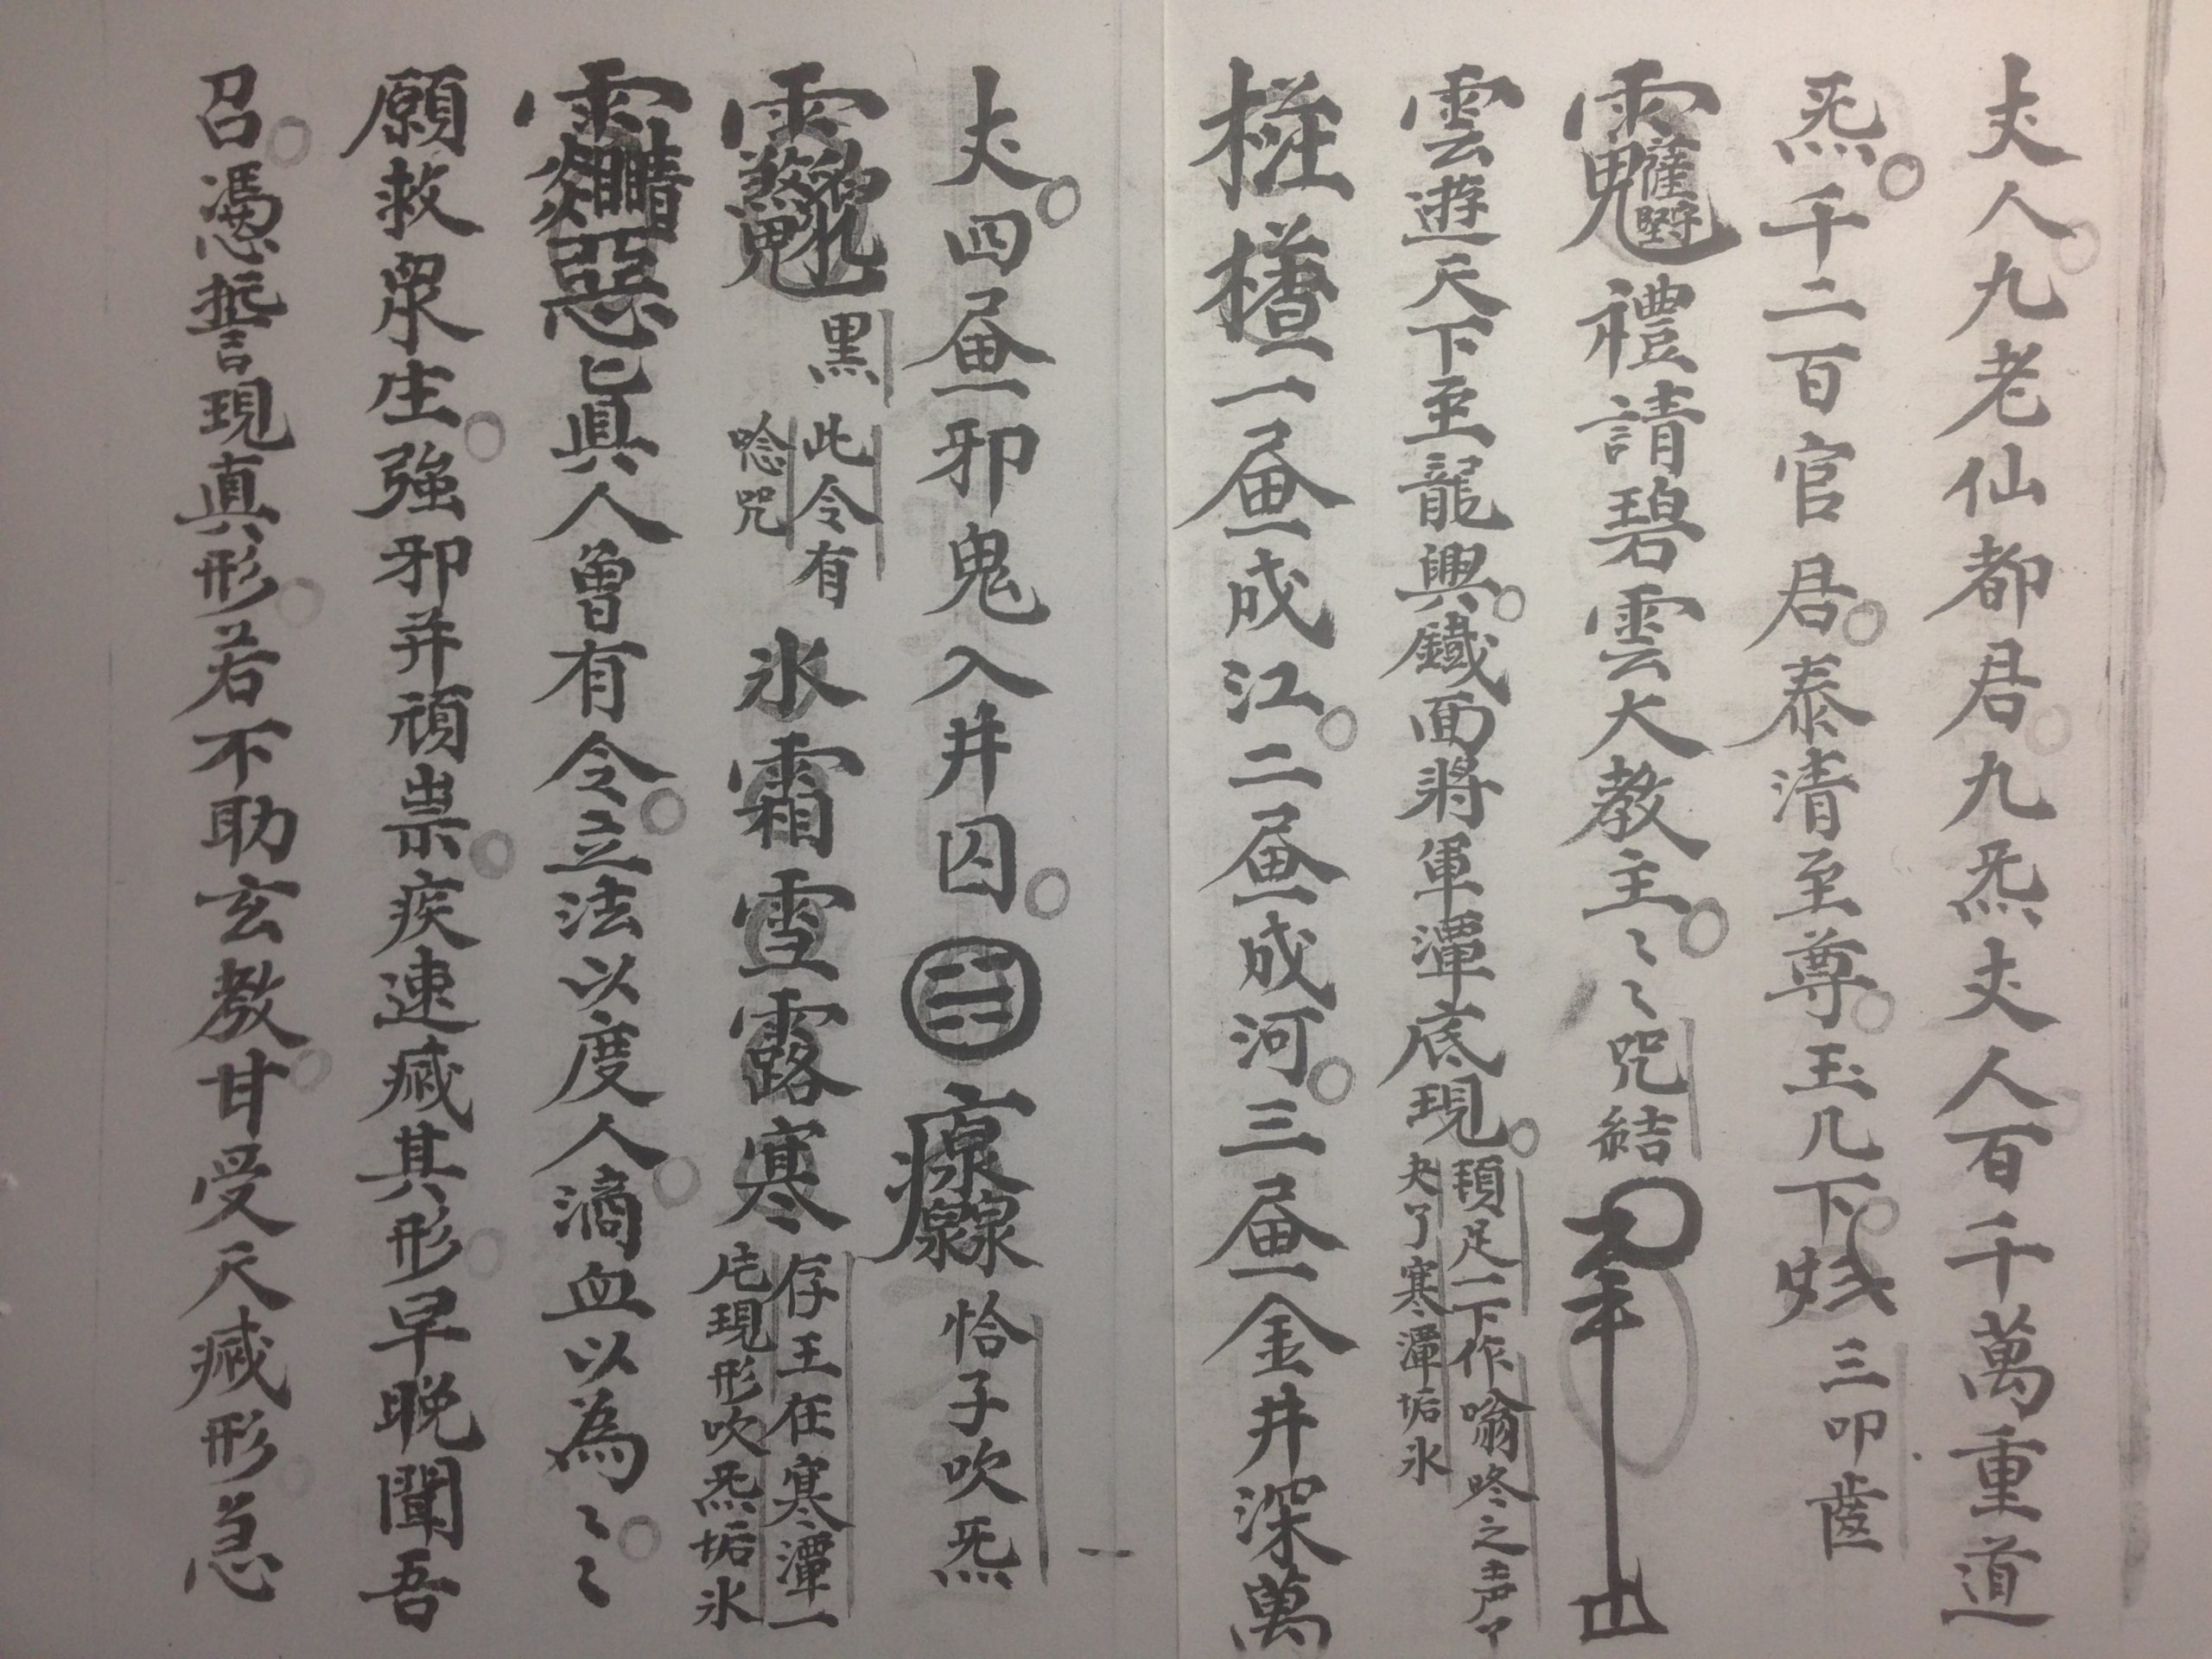 丈人九老仙都君九炁丈人百千萬重道
炁千二百官君泰清至尊玉几下
三叩齒
禮請碧雲大教主〻〻
咒結
雲遊天下至龍興鐵面將軍潭底現
頓足一下作嗡咚之声
夬了寒潭垢氷
一畫成江二畫成河三畫金井深萬
丈四畫邪鬼入井囚
恰子吹炁
黑
此令有
唸咒
氷霜雪露寒
存王在寒潭一
庀現形吹炁垢氷
眞人曾有令立法以度人滴血以為〻〻
願救衆生強邪并頑祟疾速滅其形早晚聞吾
召憑誓現真形若不助玄教甘受天滅形急